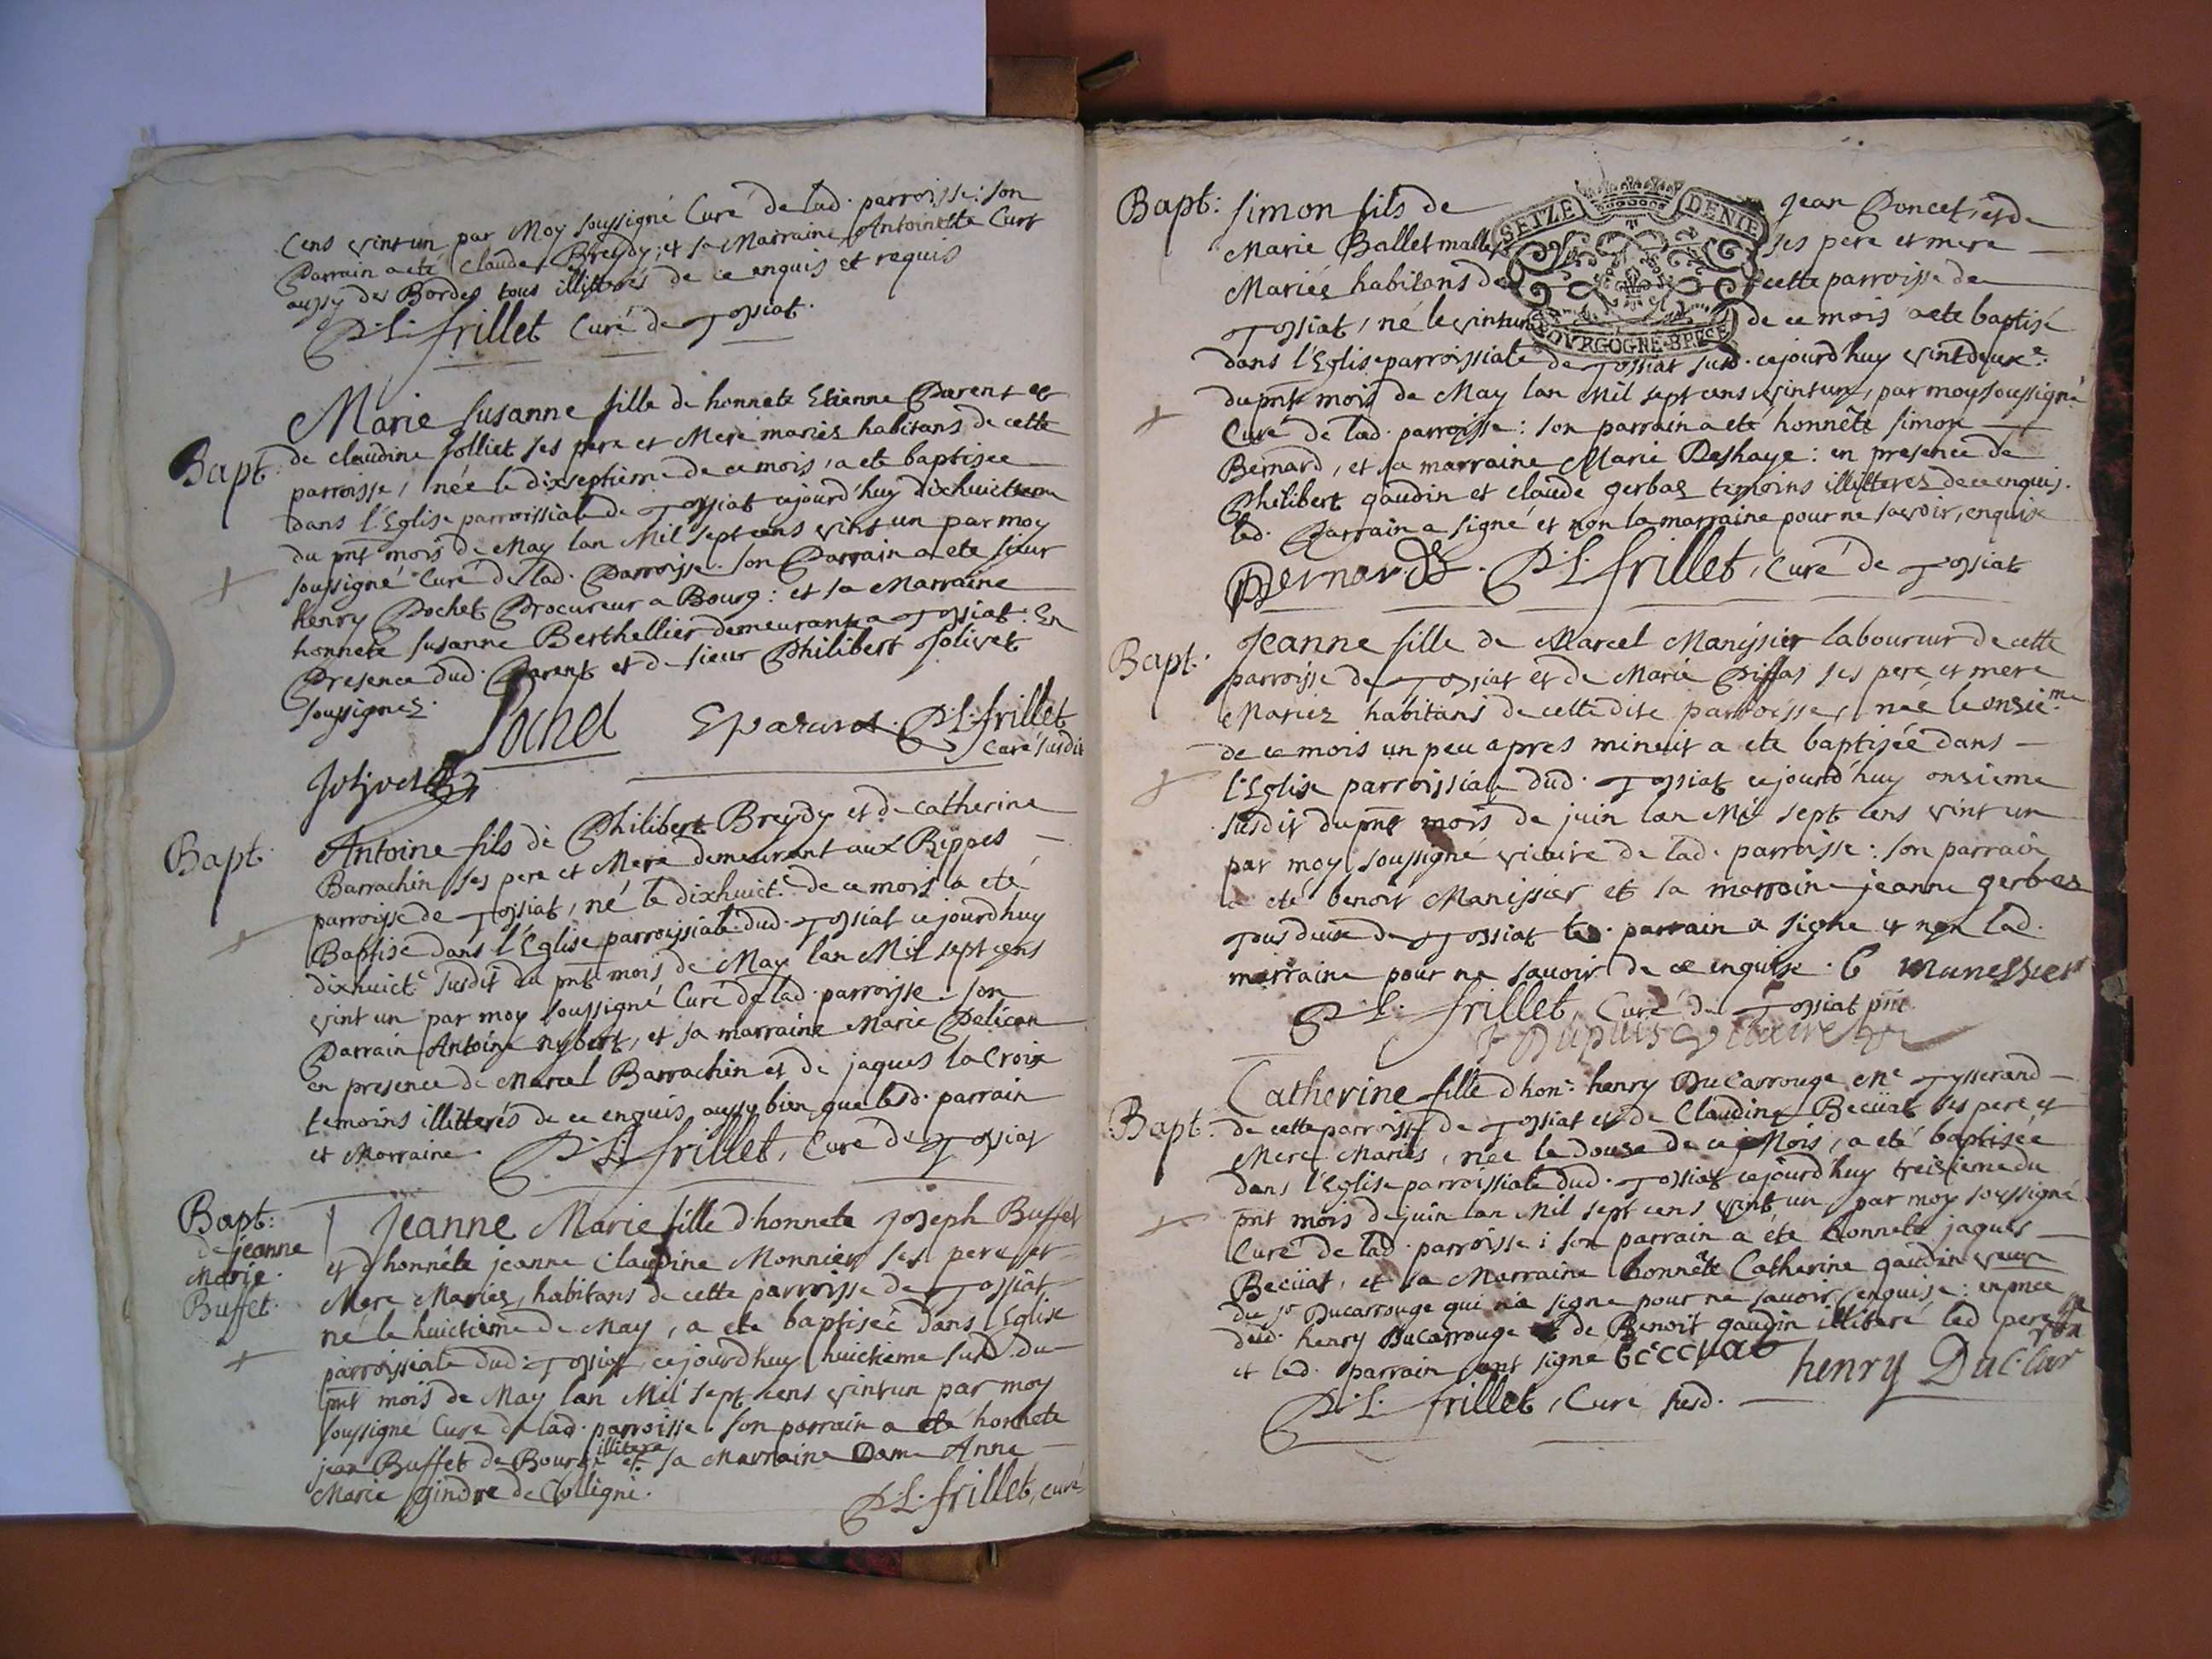 Cens vint un par Moy soussigné Curé de lad. parroisse: son
Parrain a eté Claude Breydy, et sa Marraine Antoinette Curt
aussy des Bordes tous illitterés de ce enquis et requis
P. L. frillet Curé de Tossiat.
Bapt:
Marie Susanne fille de honnete Etienne Parent et
de claudine Jolliet ses pere et Mere mariés habitans de cette
parroisse, née le dixseptieme de ce mois, a eté baptisée
dans l'Eglise parroissiale de Tossiat cejourd'huy dixhuictieme
du pnt mois de May lan Mil sept cens vint un par moy
soussigné Curé de lad. Parroisse. son Parrain a ete sieur
henry Pochet Procureur a Bourg: et sa Marraine
honnete Susanne Berthellier demeurante a Tossiat. En
Presence dud. Parent et de sieur Philibert Jolivet
soussignez.
Pochet EParent P. L. frillet
Curé susdit
Jolivet
Bapt.
Antoine fils de Philibert Breydy et de catherine
Barrachin ses pere et Mere demeurant aux Rippes
parroisse de Tossiat, né le dixhuict.e de ce mois a eté
Baptisé dans l'Eglise parroissiale dud. Tossiat cejourdhuy
dixhuict.e susdit du pnt mois de May lan Mil sept cens
vint un par moy soussigné Curé de lad. parroisse. son
Parrain Antoine nybert, et sa marraine Marie Pelican
en presence de Marcel Barrachin et de jaques la Croix
temoins illitterés de ce enquis aussy bien que lesd. parrain
et Marraine. P. L. frillet, Curé de Tossiat
Bapt:
de jeanne
Marie
Buffet.
Jeanne Marie fille d'honnete Joseph Buffet
et d'honnéte jeanne Claudine Monnier ses pere et
Mere Mariez, habitans de cette parroisse de Tossiat
né le huictieme de May, a ete baptisée dans l'Eglise
parroissiale dud. Tossiat, cejourdhuy huictieme susd. du
pnt mois de May lan Mil sept cens vint un par moy
soussigné Curé de lad. parroisse. son parrain a eté honnete
jean Buffet de Bourg illiteré et sa Marraine Dame Anne
Marie gindre de Colligni.
P. L. frillet, curé
Bapt: Simon fils de Jean Poncet, et de
Marie Ballet mallet ses pere et mere
Mariés habitans de cette parroisse de
Tossiat, né le vintun de ce mois a ete baptisé
SEIZE DENIE
BOVRGOGNE-BRESSE
dans l'Eglise parroissiale de Tossiat susd. cejourdhuy vintdeux.e
du pnt mois de May lan Mil sept cens vintun, par moy soussigné
Curé de lad. parroisse: son parrain a eté honnête simon
Bernard, et sa marraine Marie Deshaye: en presence de
Philibert gaudin et claude gerbas temoins illitteres de ce enquis.
led. Parrain a signé et non la marraine pour ne savoir, enquise
Bernard. P. L. frillet, Curé de Tossiat
Bapt.
Jeanne fille de Marcel Manissier laboureur de cette
parroisse de Tossiat et de Marie Piffas ses pere et mere
Mariez habitans de cette dite parroisse, née le onzie.me
de ce mois un peu apres minuit a ete baptisée dans
l'Eglise parroissiale dud. Tossiat cejourd'huy onsieme
susdit du pnt mois de juin lan Mil sept cens vint un
par moy soussigné vicaire de lad. parroisse: son parrain
a eté benoit Manissier et sa marraine jeanne gerbas
Tous deux de Tossiat led. parrain a signe et non lad.
marraine pour ne savoir de ce enquise. b manessier
P. L. frillet, Curé de Tossiat pnt
Dupuis vicaire
Bapt:
Catherine fille d'hon.e henry DuCarrouge M.e Tysserand
de cette parroisse de Tossiat et de Claudine Becüat ses pere et
Mere Mariés, née le douze de ce Mois, a eté baptisée
dans l'Eglise parroissiale dud. Tossiat cejourd'huy treizieme du
pnt mois de juin lan Mil sept cens vint un, par moy soussigné
Curé de lad. parroisse: son parrain a été honnete jaques
Becüat, et sa Marraine honnête Catherine gaudin veuve
du sr Ducarrouge qui n'a signé pour ne savoir enquise: en pnce
dud. henry DuCarrouge et de Benoit gaudin illiteré led pere
et led. parrain ont signé becüat henry DuCar
P. L. frillet, Curé susd.